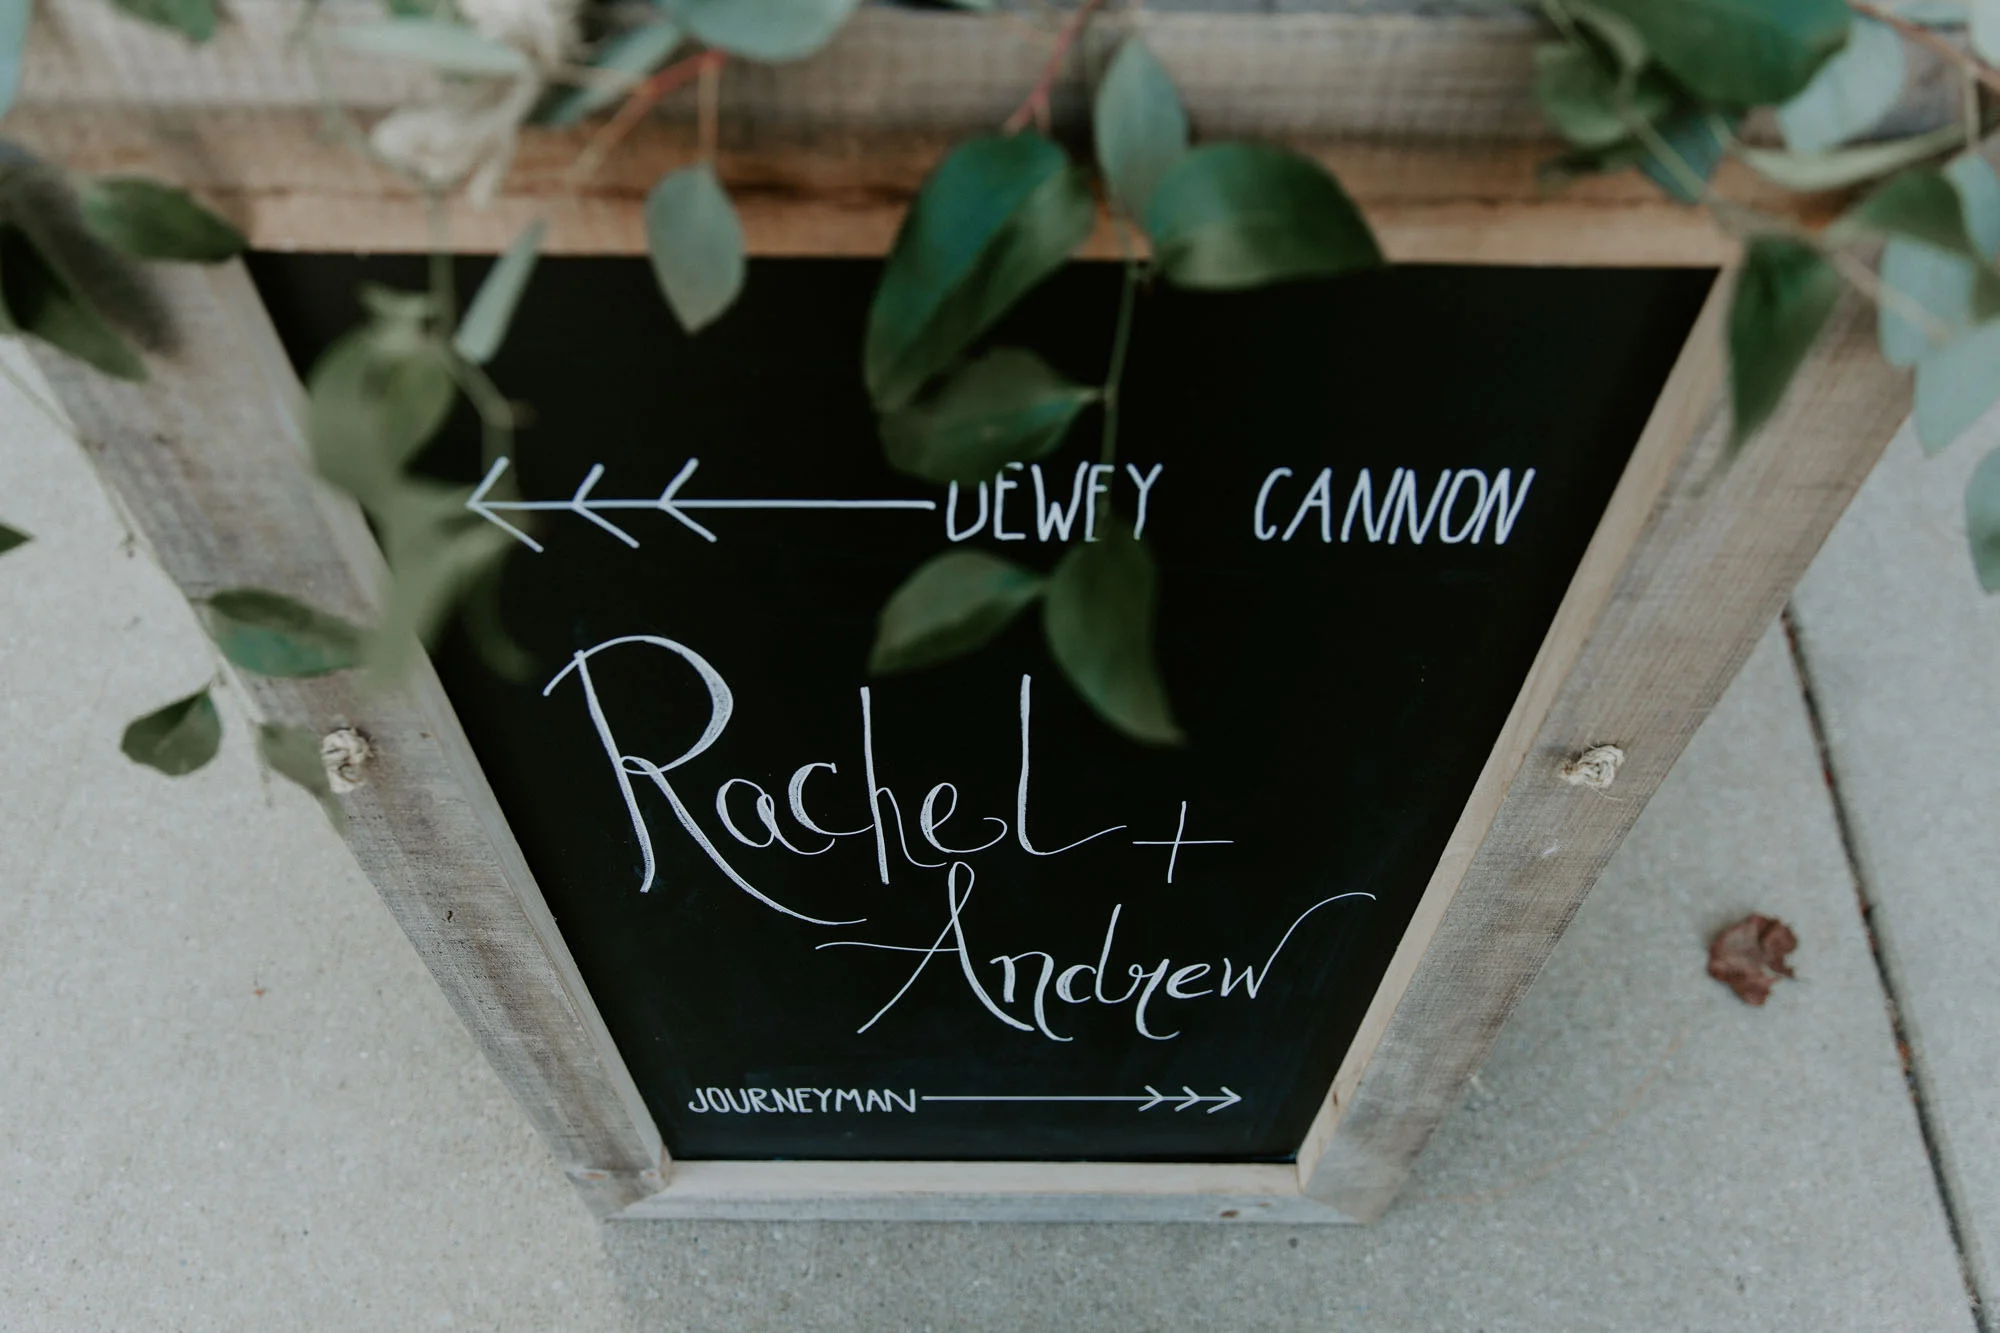 DEWEY CANNON
Rachel +
Andrew
JOURNEYMAN